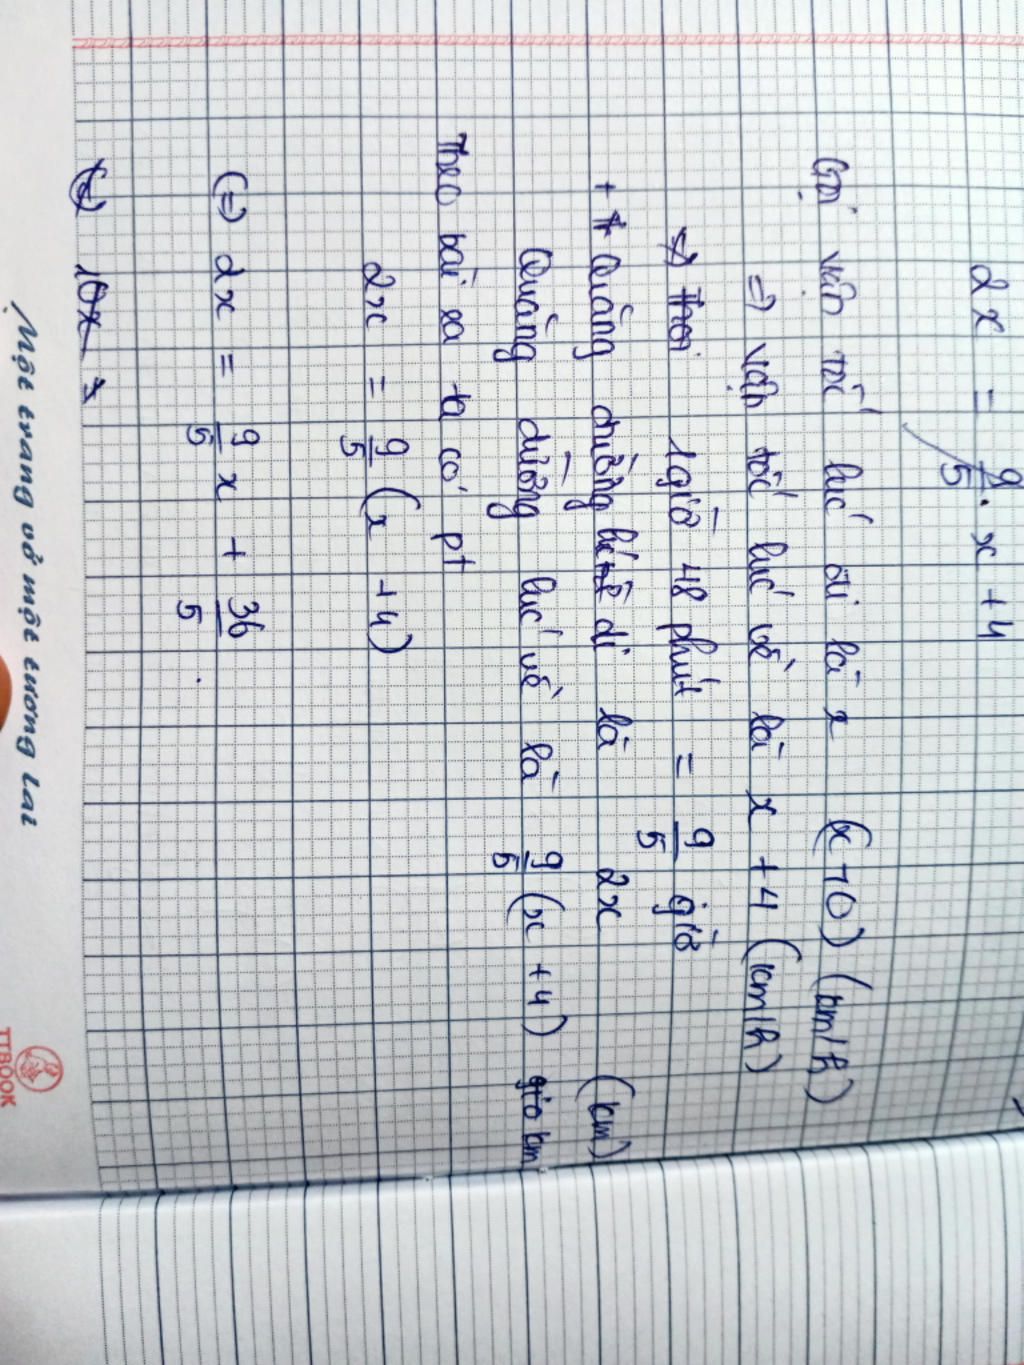 2x = 9/5 . x + 4
Gọi vận tốc lúc đi là x (x > 0) (km/h)
=> vận tốc lúc về là x + 4 (km/h)
1 giờ 48 phút = 9/5 giờ
+ Quãng đường đi là 2x (km)
Quãng đường lúc về là 9/5 (x + 4) km
Theo bài ra ta có pt
2x = 9/5 (x + 4)
(=) 2x = 9/5 x + 36/5
10x
Một trang vở một tương lai
TTBOOK